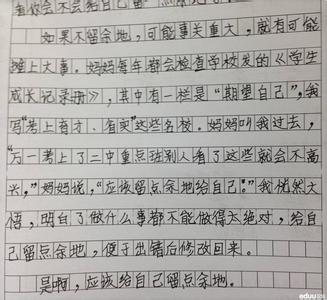 看你会不会给自己留
如果不留余地，可能事关重大，就有可能
摊上大事。妈妈每年都会检查学校发的《学生
成长记录册》，其中有一栏是“期望自己”，我
写“考上育才、省实”这些名校。妈妈叫我过去，
“万一考上了二中重点班别人看了这些就会不高
兴，”妈妈说，“应该留点余地给自己。”我恍然大
悟，明白了做什么事都不能做得太绝对，给自
己留点余地，便于出错后修改回来。
是啊，应该给自己留点余地。
eduu